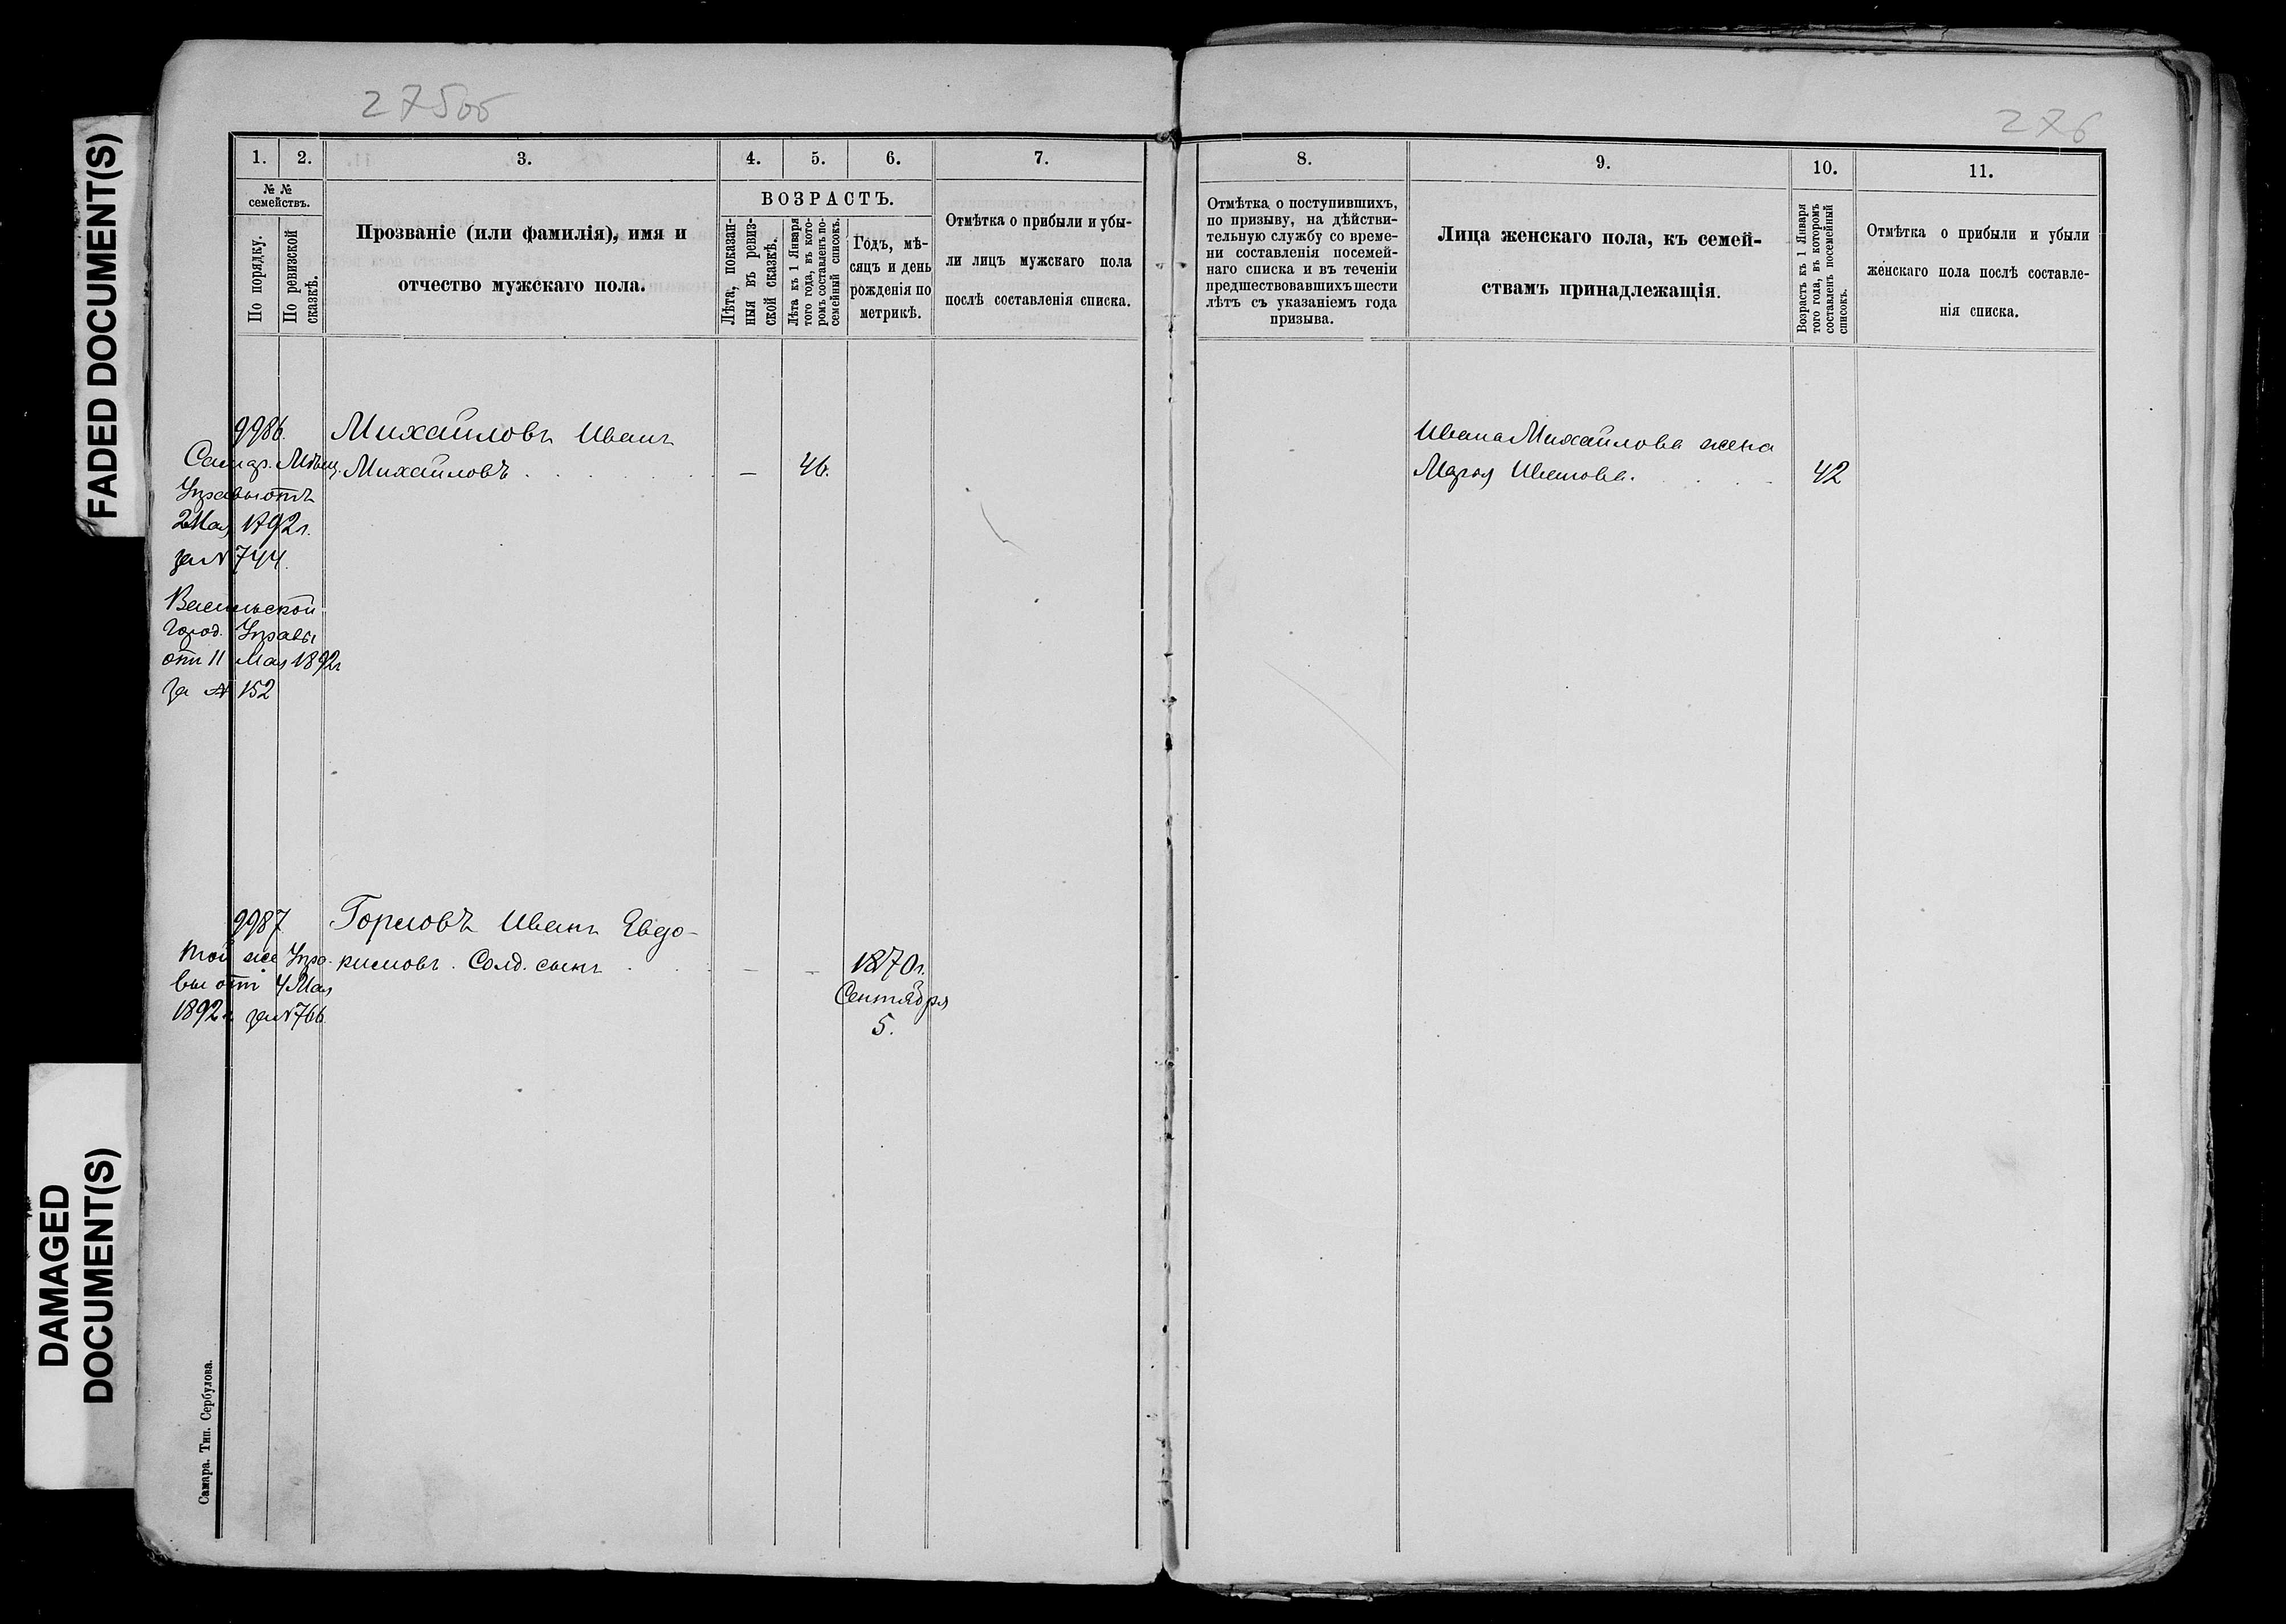 FADED DOCUMENT(S)
DAMAGED
DOCUMENT(S)
275об
1.
2.
3.
4.
5.
6.
7.
№ №
семействъ.
По порядку.
По ревизской
сказкѣ.
Прозваніе (или фамилія), имя и
отчество мужскаго пола.
ВОЗРАСТЪ.
Лѣта, показан-
ныя въ ревиз-
ской сказкѣ.
Лѣта къ 1 Января
того года, въ кото-
ромъ составленъ по-
семейный списокъ.
Годъ, мѣ-
сяцъ и день
рожденія по
метрикѣ.
Отмѣтка о прибыли и убы-
ли лицъ мужскаго пола
послѣ составленія списка.
9986.
Самар. Мѣщ.
Управы отъ
2 Мая 1892 г.
за № 744.
Васильской
Город. Управы
отъ 11 Мая 1892 г
за № 152
Михайловъ Иванъ
Михайловъ . . . . . . — 46.
9987
той же Упра-
вы отъ 4 Мая
1892 г. за № 766
Горловъ Иванъ Евдо-
кимовъ. Солд. сынъ . . . — — 1870 г.
Сентября
5.
Самара. Тип. Сербулова.
276
8.
9.
10.
11.
Отмѣтка о поступившихъ,
по призыву, на дѣйстви-
тельную службу со време-
ни составленія посемей-
наго списка и въ теченіи
предшествовавшихъ шести
лѣтъ съ указаніемъ года
призыва.
Лица женскаго пола, къ семей-
ствамъ принадлежащія.
Возрастъ къ 1 Января
того года, въ которомъ
составленъ посемейный
списокъ.
Отмѣтка о прибыли и убыли
женскаго пола послѣ составле-
нія списка.
Ивана Михайлова жена
Марья Иванова. . . . . 42